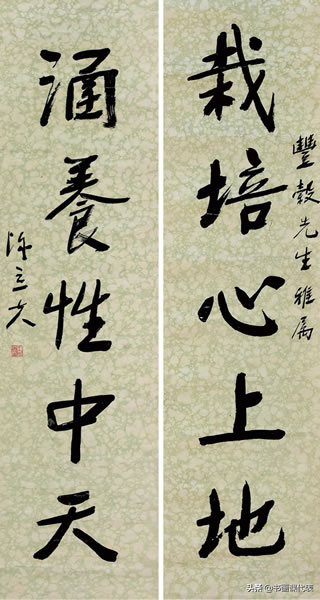 豐穀先生雅属
栽培心上地
涵養性中天
陳立夫
头条 @书画课代表